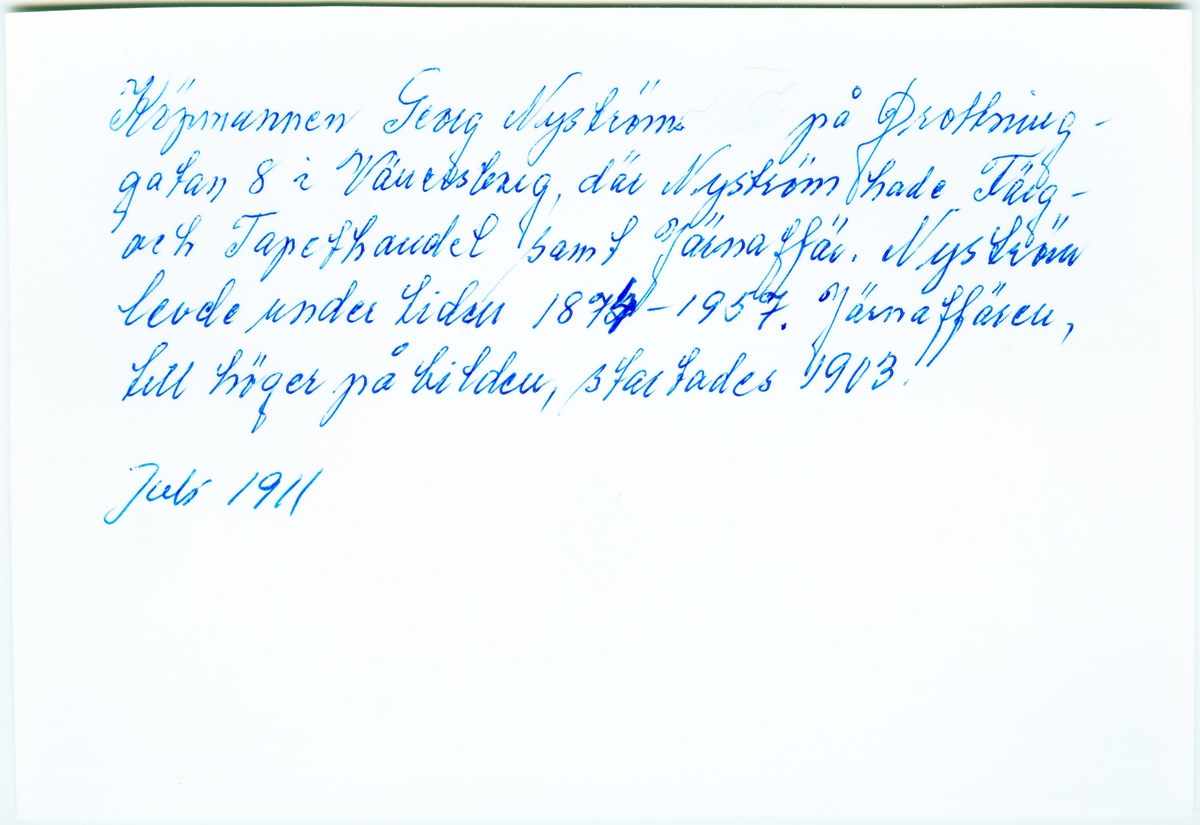 Köpmannen Georg Nyström på Drottning-
gatan 8 i Vänersborg, där Nyström hade Färg-
och Tapethandel samt Järnaffär. Nyström
levde under tiden 1874-1957. Järnaffären,
till höger på bilden, startades 1903.
Juli 1911